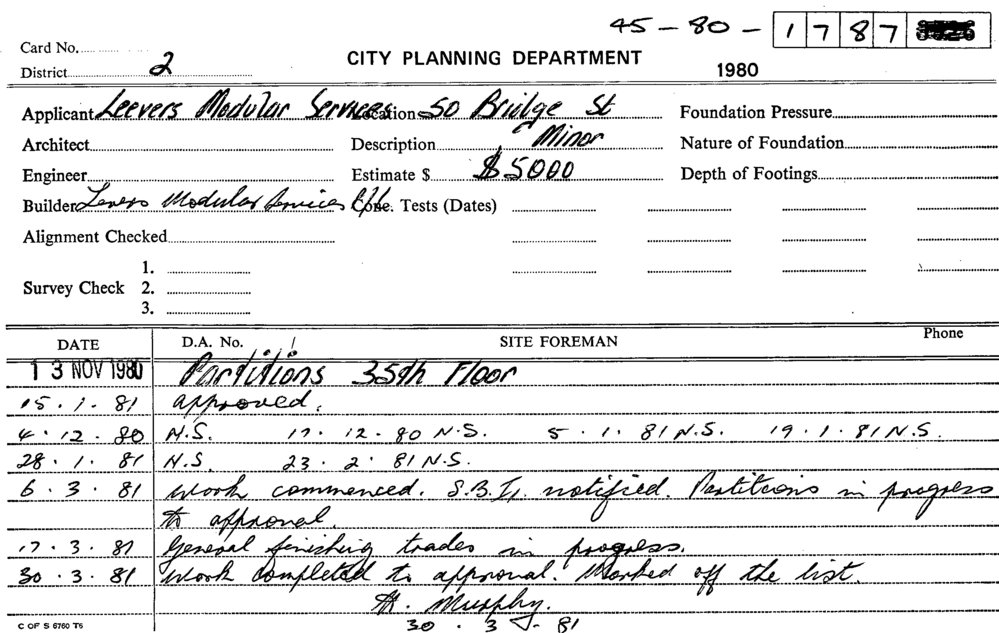 45 - 80 - 1 7 8 7
Card No.
District 2
CITY PLANNING DEPARTMENT
1980
Applicant Leevers Modular Services Location 50 Bridge St Foundation Pressure
Architect Description Minor Nature of Foundation
Engineer Estimate $ $5000 Depth of Footings
Builder Levers Modular Services P/L Conc. Tests (Dates)
Alignment Checked
1.
Survey Check 2.
3.
DATE D.A. No. SITE FOREMAN Phone
13 NOV 1980 Partitions 35th Floor
15 . 1 . 81 approved.
4 . 12 . 80 N.S. 17 . 12 . 80 N.S. 5 . 1 . 81 N.S. 19 . 1 . 81 N.S.
28 . 1 . 81 N.S. 23 . 2 . 81 N.S.
6 . 3 . 81 Work commenced. notified. Partitions in progress
to approval.
17 . 3 . 81 General finishing trades in progress.
30 . 3 . 81 Work completed to approval. Marked off the list.
H. Murphy.
30 . 3 . 81
C OF S 6760 T6